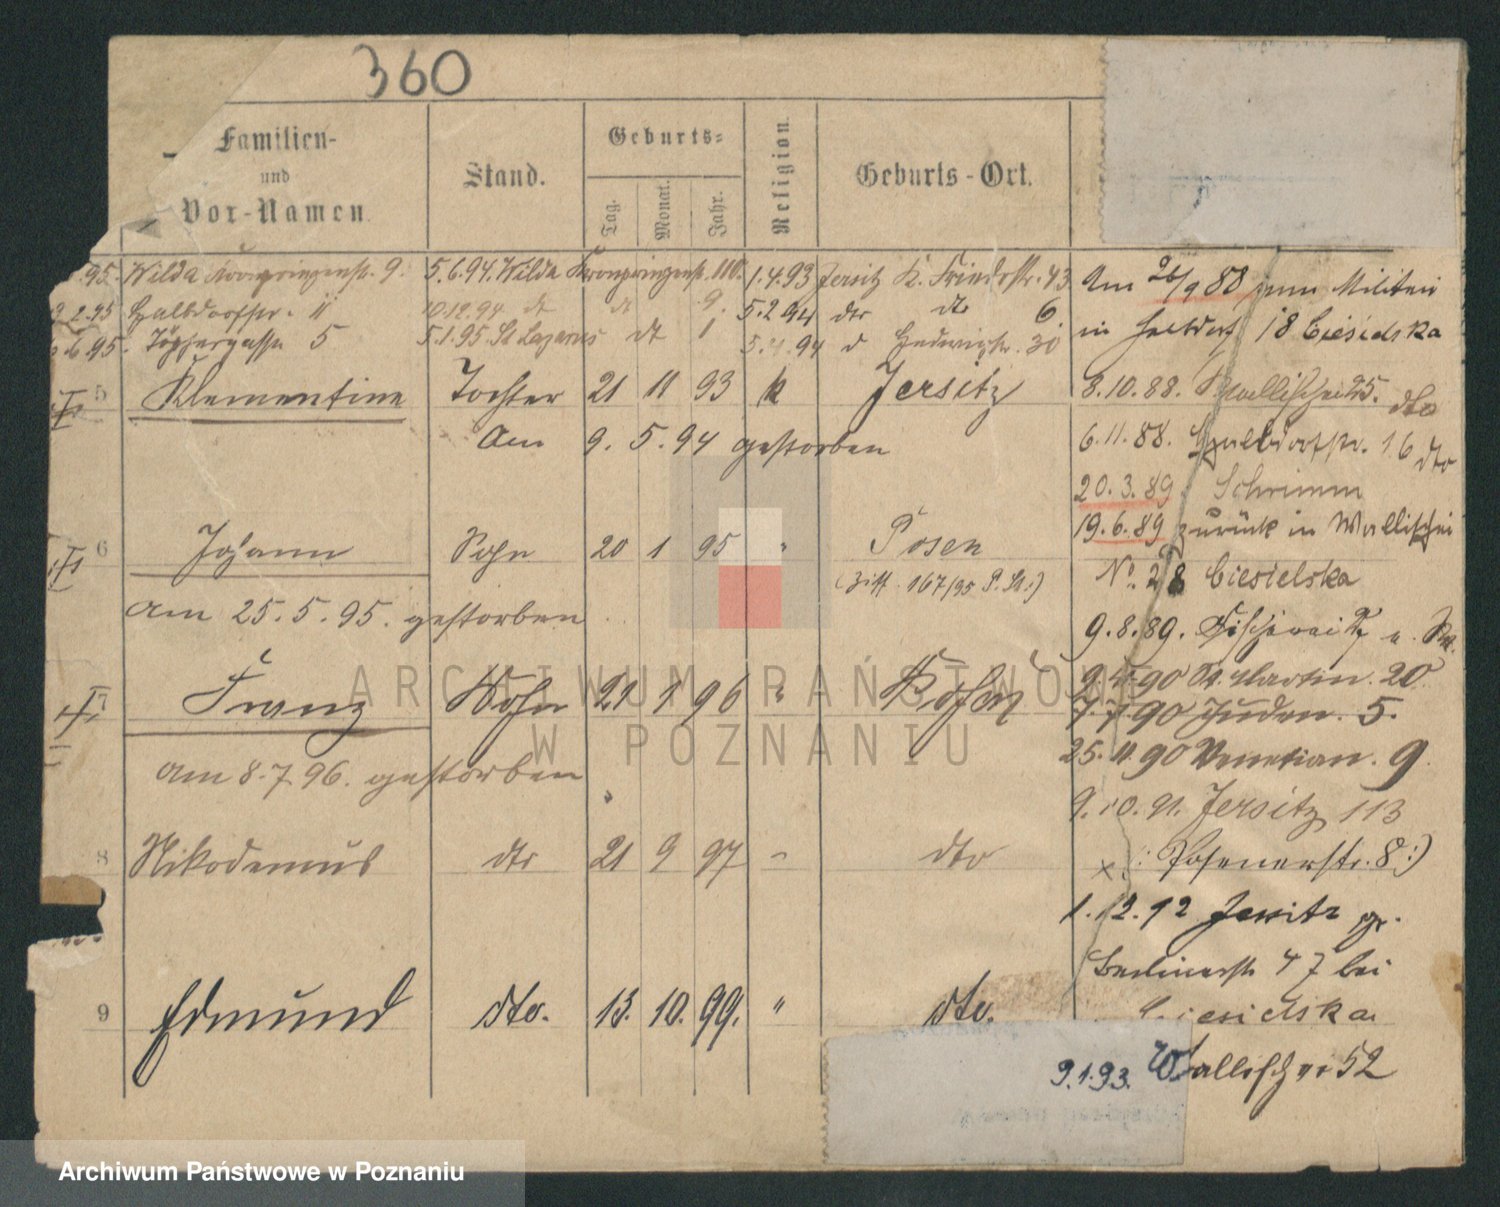 360
Familien-
und
Vor-Namen.
Stand.
Geburts-
Tag.
Monat.
Jahr.
Religion.
Geburts-Ort.
95. Wilda Kronprinzenstr. 9. 5.6.94. Wilda Kronprinzenstr. 110. 1.4.93 Jersitz K. Friedrstr. 43
2.95 Halbdorfstr. 11 10.12.94 dt dt 9. 5.2.94 dto dto 6
6.95. Töpfergasse 5 5.1.95. St Lazarus dt 1 5.4.94 d Hedwigstr. 30
5 Klementine Tochter 21 11 93 k Jersitz
Am 9. 5. 94 gestorben
6 Johann Sohn 20 1 95 " Posen
(Ziff. 167/95 P. St:)
am 25. 5. 95. gestorben
7 Franz Sohn 21 1 96 "
am 8.7.96. gestorben
8 Nikodemus dto 21 9 97 - dto
9 Edmund dto. 13. 10. 99. " dto.
Am 26/9 88 zum Militair
in Halbdorf 18 Ciesielska
8.10.88. Wallischei 25. dto
6.11.88. Halbdorfstr. 16 dto
20.3.89 Schrimm
19.6.89 zurück in Wallischei
No. 28 Ciesielska
9.8.89. Fischerei
90 St. Martin. 20
7.7.90 Juden. 5.
25.11.90 Venetian. 9.
9.10.91. Jersitz 113
x (: Posenerstr. 8:)
1.12.92 Jersitz gr.
Berlinerstr 47 bei
Ciesielska
9.1.93. Wallischei 52
ARCHIWUM PAŃSTWOWE
W POZNANIU
Archiwum Państwowe w Poznaniu